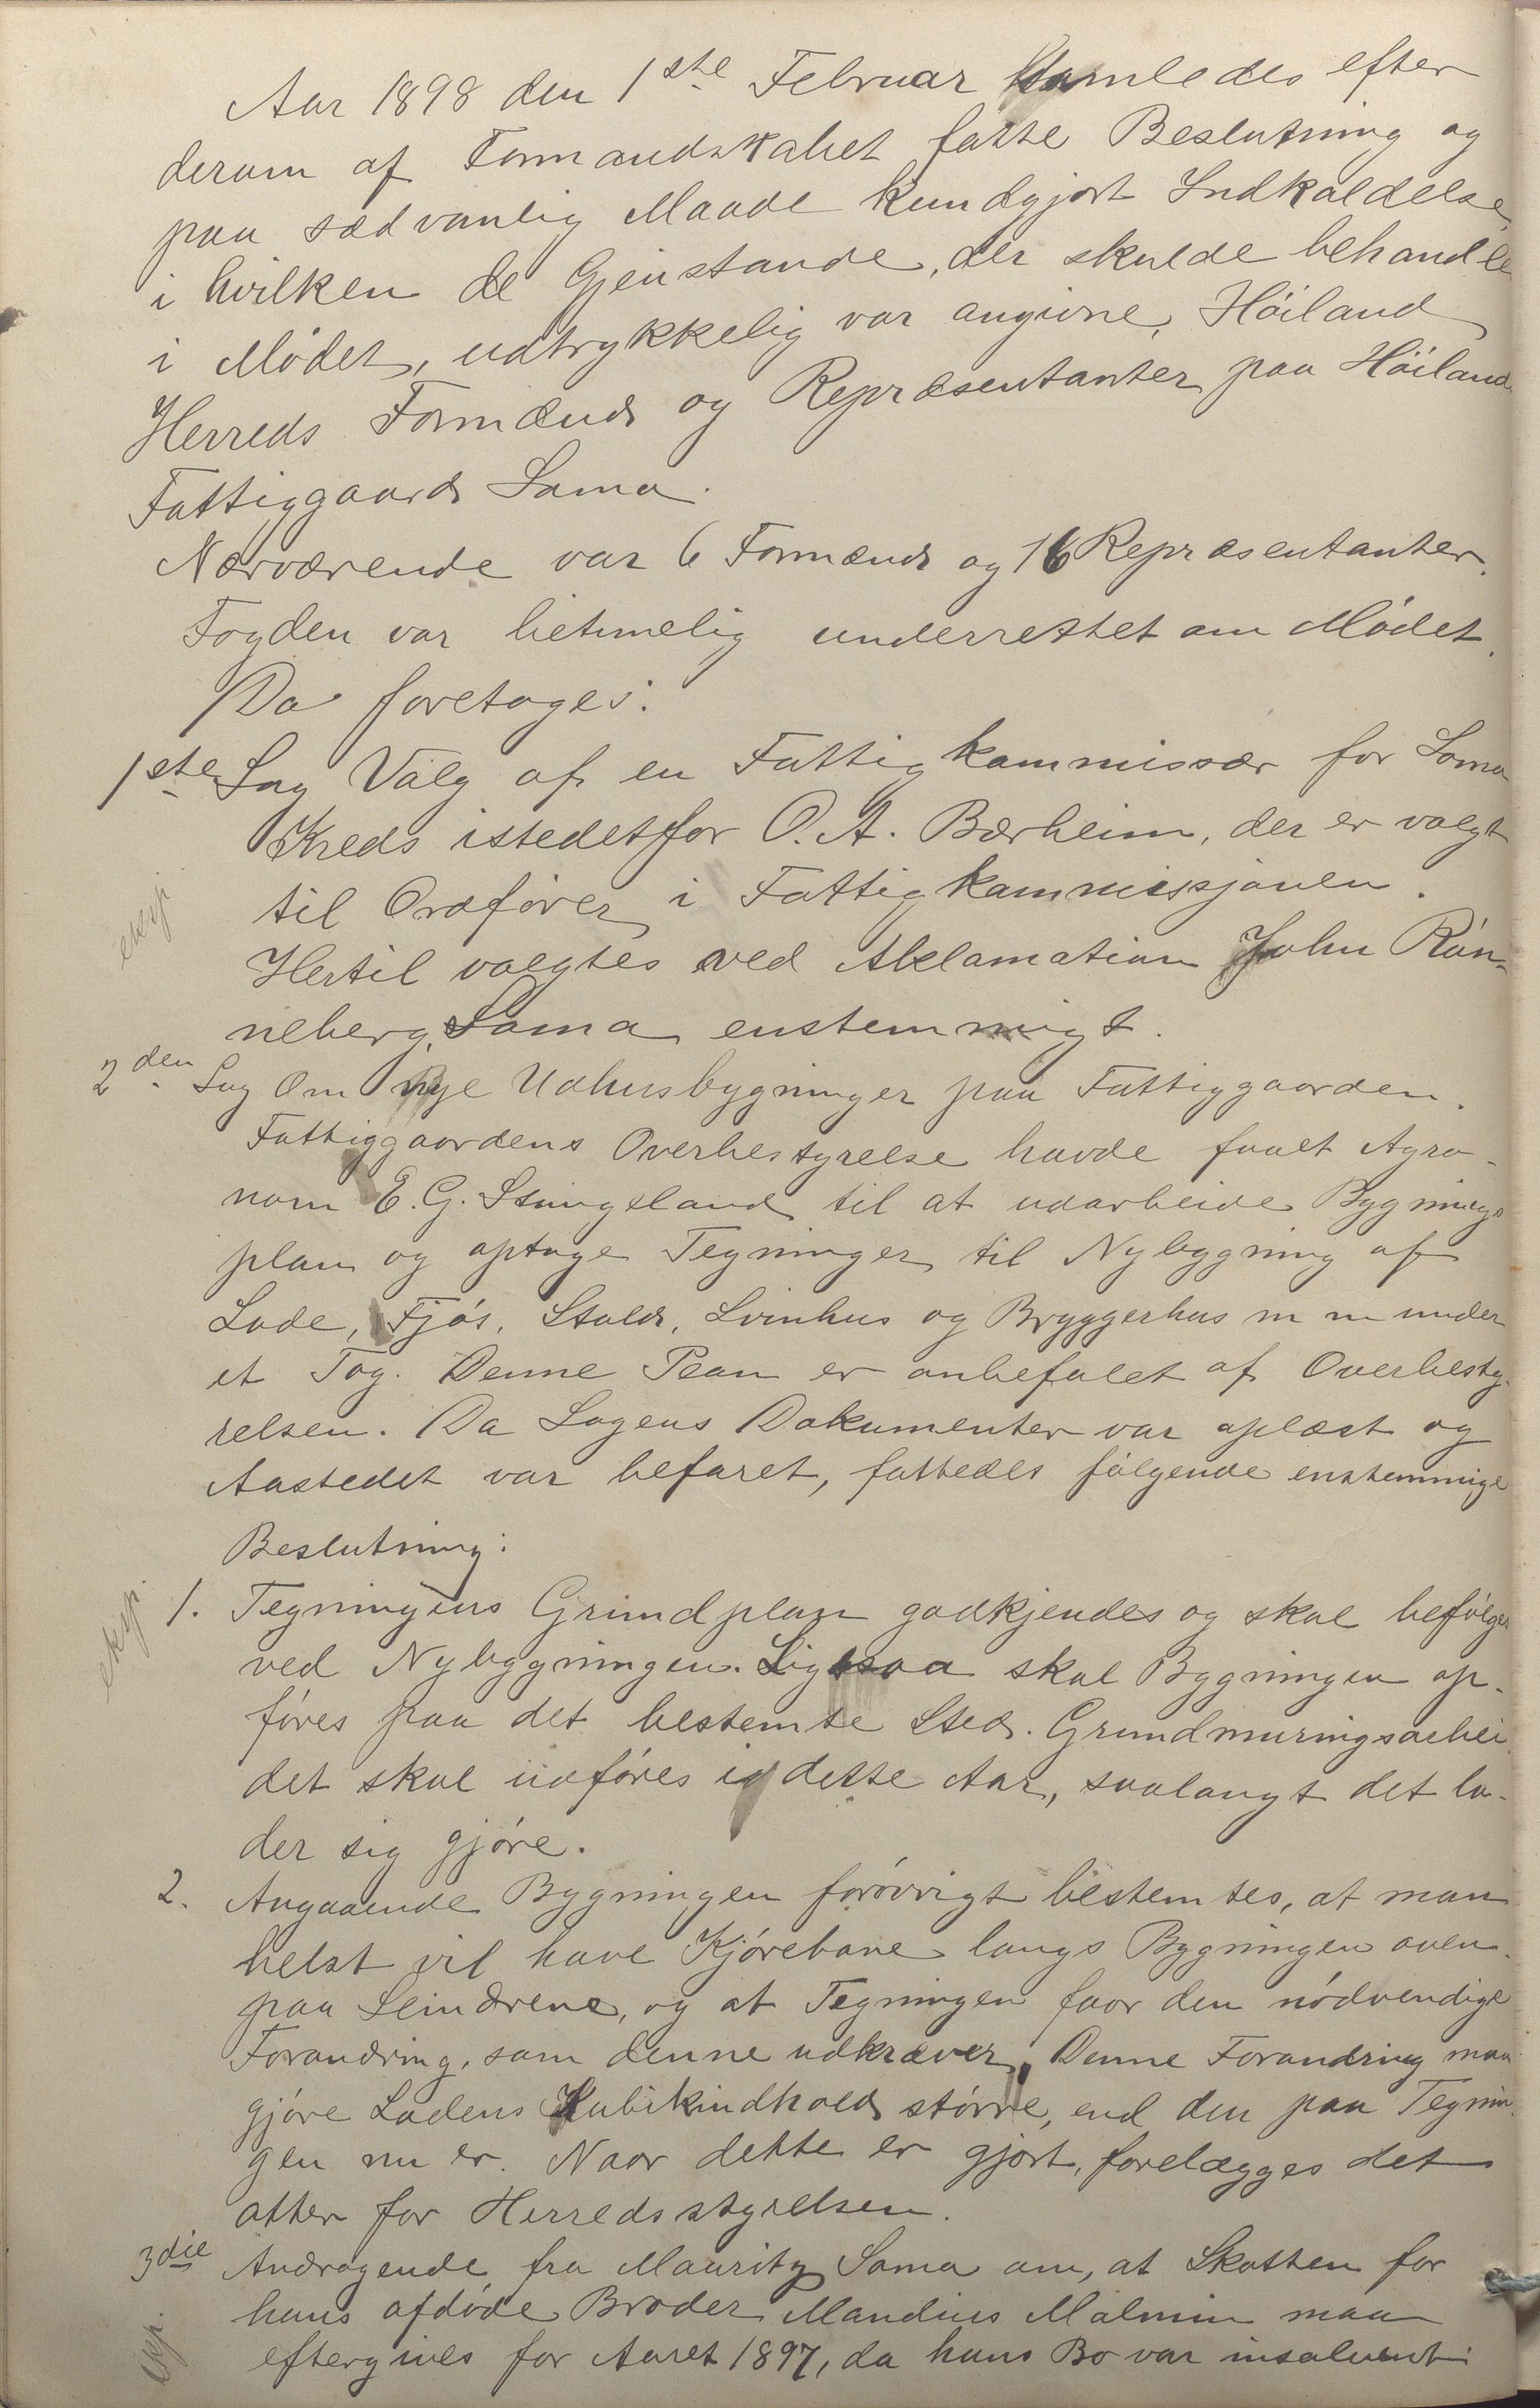 Aar 1898 den 1ste Februar samledes efter
derom af Formandskabet fatte Beslutning og
paa sædvanlig Maade kundgjort Indkaldelse,
i hvilken de Gjenstande, der skulde behandles
i Mødet, udtrykkelig var angivne, Höiland
Herreds Formænd og Repræsentanter paa Höilands
Fattiggaard Soma.
Nærværende var 6 Formænd og 16 Repræsentanter.
Fogden var betimelig underrettet om Mödet.
Da foretoges:
1ste Sag Valg af en Fattigkommissær for Soma
Kreds istedetfor O. A. Bærheim, der er valgt
til Ordförer i Fattigkommissjonen.
eksp.
Hertil valgtes ved Aklamation John Rön-
neberg, Soma enstemmigt.
2den Sag Om nye Udhusbygninger paa Fattiggaarden.
Fattiggaardens Overbestyrelse havde faaet Agro-
nom E. G. Stangeland til at udarbeide Bygnings
plan og optage Tegninger til Nybygning af
Lade, Fjös, Stald, Svinhus og Bryggerhus m m under
et Tag. Denne Plan er anbefalet af Overbesty-
relsen. Da Sagens Dokumenter var oplæst og
Aastedet var befaret, fattedes fölgende enstemmige
Beslutning:
eksp.
1. Tegningens Grundplan godkjendes og skal befölges
ved Nybygningen. Ligesaa skal Bygningen op-
föres paa det bestemte Sted. Grundmuringsarbei-
det skal udföres i dette Aar, saalangt det la-
der sig gjöre.
2. Angaaende Bygningen forövrigt bestemtes, at man
helst vil have Kjörebane langs Bygningen oven-
paa Leindrene, og at Tegningen faar den nödvendige
Forandring, som denne udkræver. Denne Forandring maa
gjöre Ladens Kubikindhold större, end den paa Tegnin-
gen nu er. Naar dette er gjort, forelægges det
atter for Herredsstyrelsen.
3die Andragende fra Mauritz Soma om, at Skatten for
hans afdöde Broder Mandius Malmin maa
eksp.
eftergives for Aaret 1897, da hans Bo var insolvent.